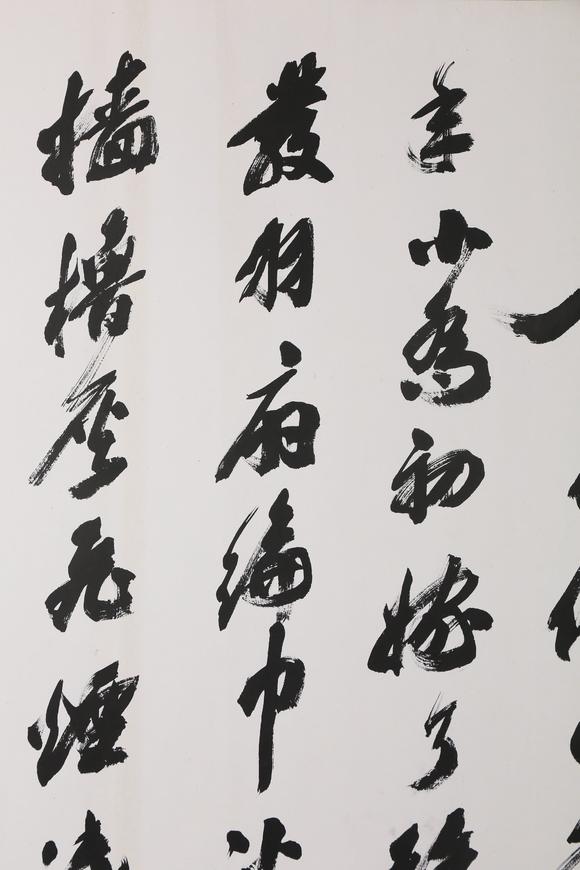 年小喬初嫁了
發羽扇綸巾
檣櫓灰飛煙